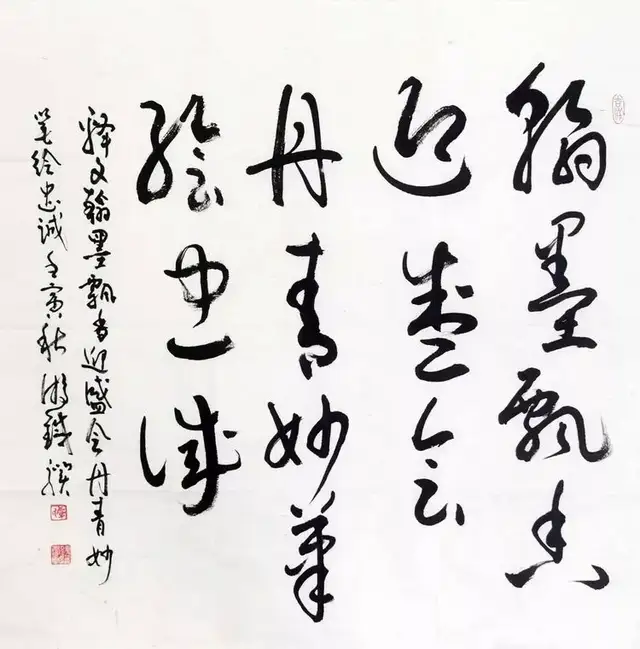 翰墨飘香
迎盛会
丹青妙筆
绘忠诚
释文翰墨飘香迎盛会丹青妙
笔绘忠诚壬寅秋